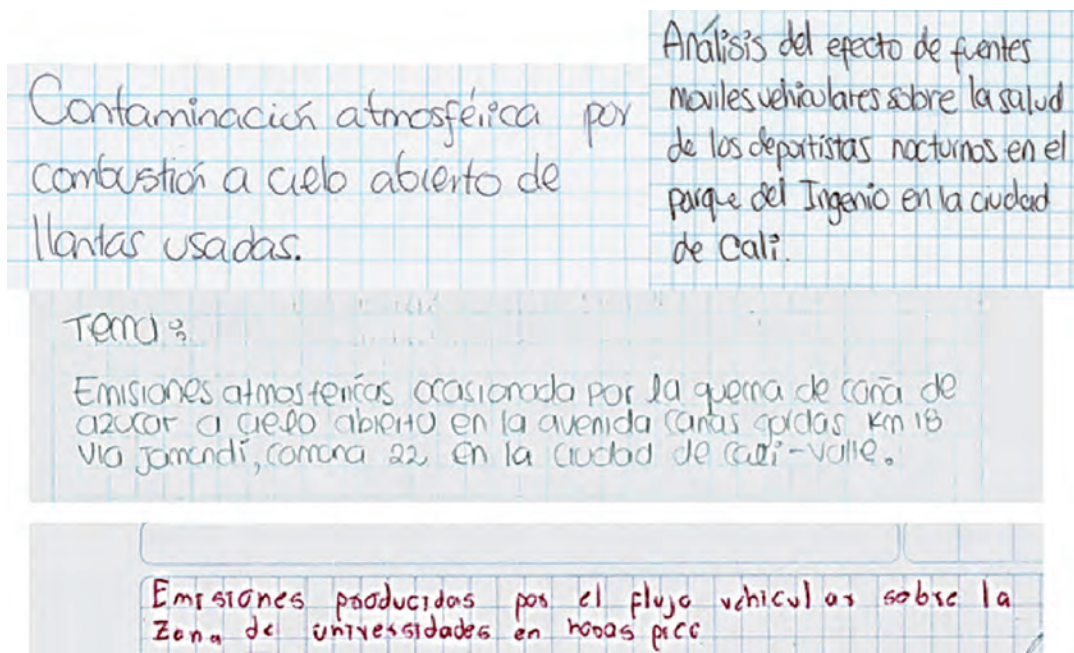 Contaminación atmosférica por
combustión a cielo abierto de
llantas usadas.
Análisis del efecto de fuentes
moviles vehiculares sobre la salud
de los deportistas nocturnos en el
parque del Ingenio en la ciudad
de Cali.
Tema:
Emisiones atmosfericas ocasionada por la quema de caña de
azucar a cielo abierto en la avenida cañas gordas Km 18
via jamundí, comuna 22 en la ciudad de cali-valle.
Emisiones producidas por el flujo vehicular sobre la
Zona de universidades en horas pico